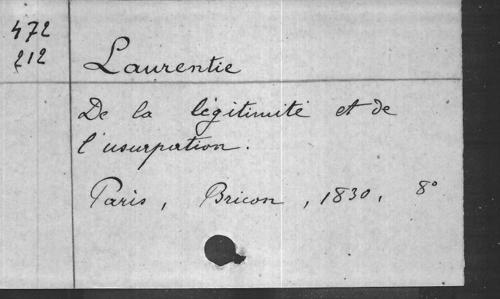 472
212
Laurentie
De la légitimité et de
l'usurpation.
Paris, Bricon, 1830, 8°